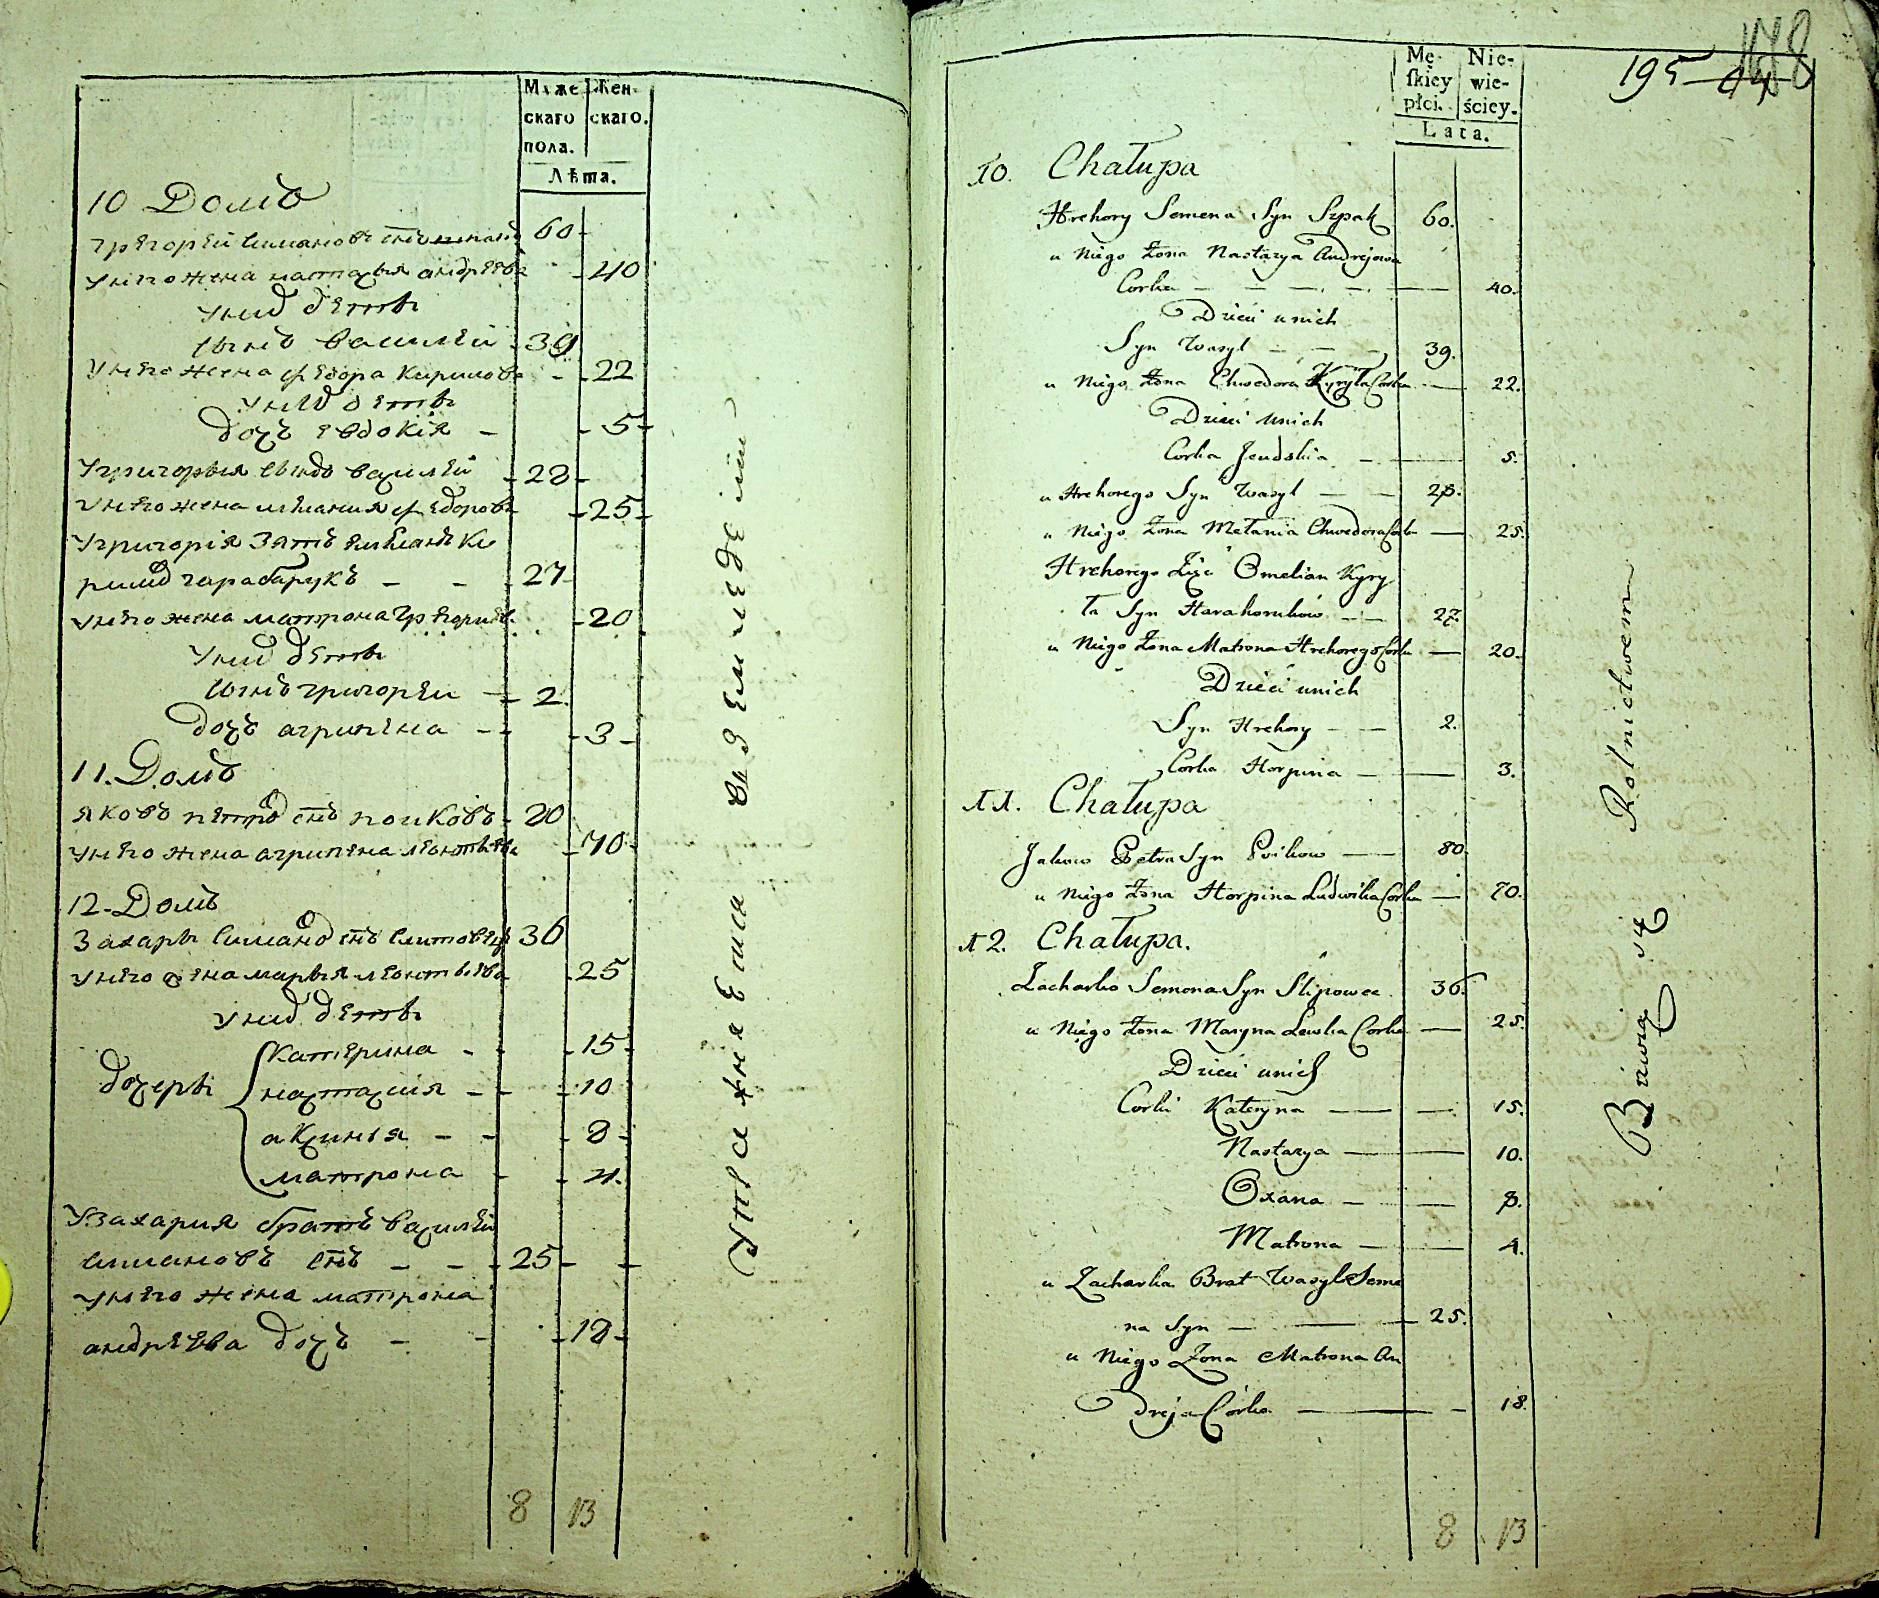 Муже Жен-
скаго скаго.
пола.
Лѣта.
10 Домъ
Григорей Симановъ снъ 60
у него жена настасья андреева 40
у них дети
сынъ василей 39
У него жена федора кирилова 22
у них дети
дочь евдокія 5
У григорья сынъ василей 28
у него жена мелания федорова 25
У григорія зять емельянъ Ки
рилов гарабарукъ 27
у него жена матрона григорева 20
У них дети
сынъ григорей 2
дочь агрипена 3
11. Домъ
яковъ петров снъ поиковъ 80
у него жена агрипена леонтьева 70
12. Домъ
Захаръ Симанов снъ 36
у него жена марья леонтьева 25
у них дети
дочери катерина 15
настасия 10
аксинья 8
матрона 4
У захария братъ василей
симановъ снъ 25
у него жена матрона
андреева дочь 18
8 13
Mę- Nie-
skiey wie-
płci. ściey.
Lata.
195
10. Chałupa
Hrehory Semena Syn Szpak 60.
u Niego Żona Nastazya Andrejowa
Corka 40.
Dzieci u nich
Syn Wasyl 39.
u Niego Żona Chwedora Kyryła Corka 22.
Dzieci unich
Corka Jeudokia 5.
u Hrehorego Syn Wasyl 28.
u Niego Żona Mełania Chwedora Corka 25.
Hrehorego Zięć Omelian Kyry
ła Syn Harahorukow 27.
u Niego Żona Matrona Hrehorego Corka 20.
Dzieci unich
Syn Hrehory 2.
Corka Horpina 3.
11. Chałupa
Jakow Petra Syn Poikow 80.
u Niego Żona Horpina Ludwika Corka 70.
12. Chałupa.
Zacharko Semena Syn Slipowec 36.
u Niego Żona Maryna Lewka Corka 25.
Dzieci unich
Corki Kateryna 15.
Nastazya 10.
Oxana 8.
Matrona 4.
u Zacharka Brat Wasyl Seme
na Syn 25.
u Niego Żona Matrona An
dreja Córka 18.
Bawią się Rolnictwem
8 13